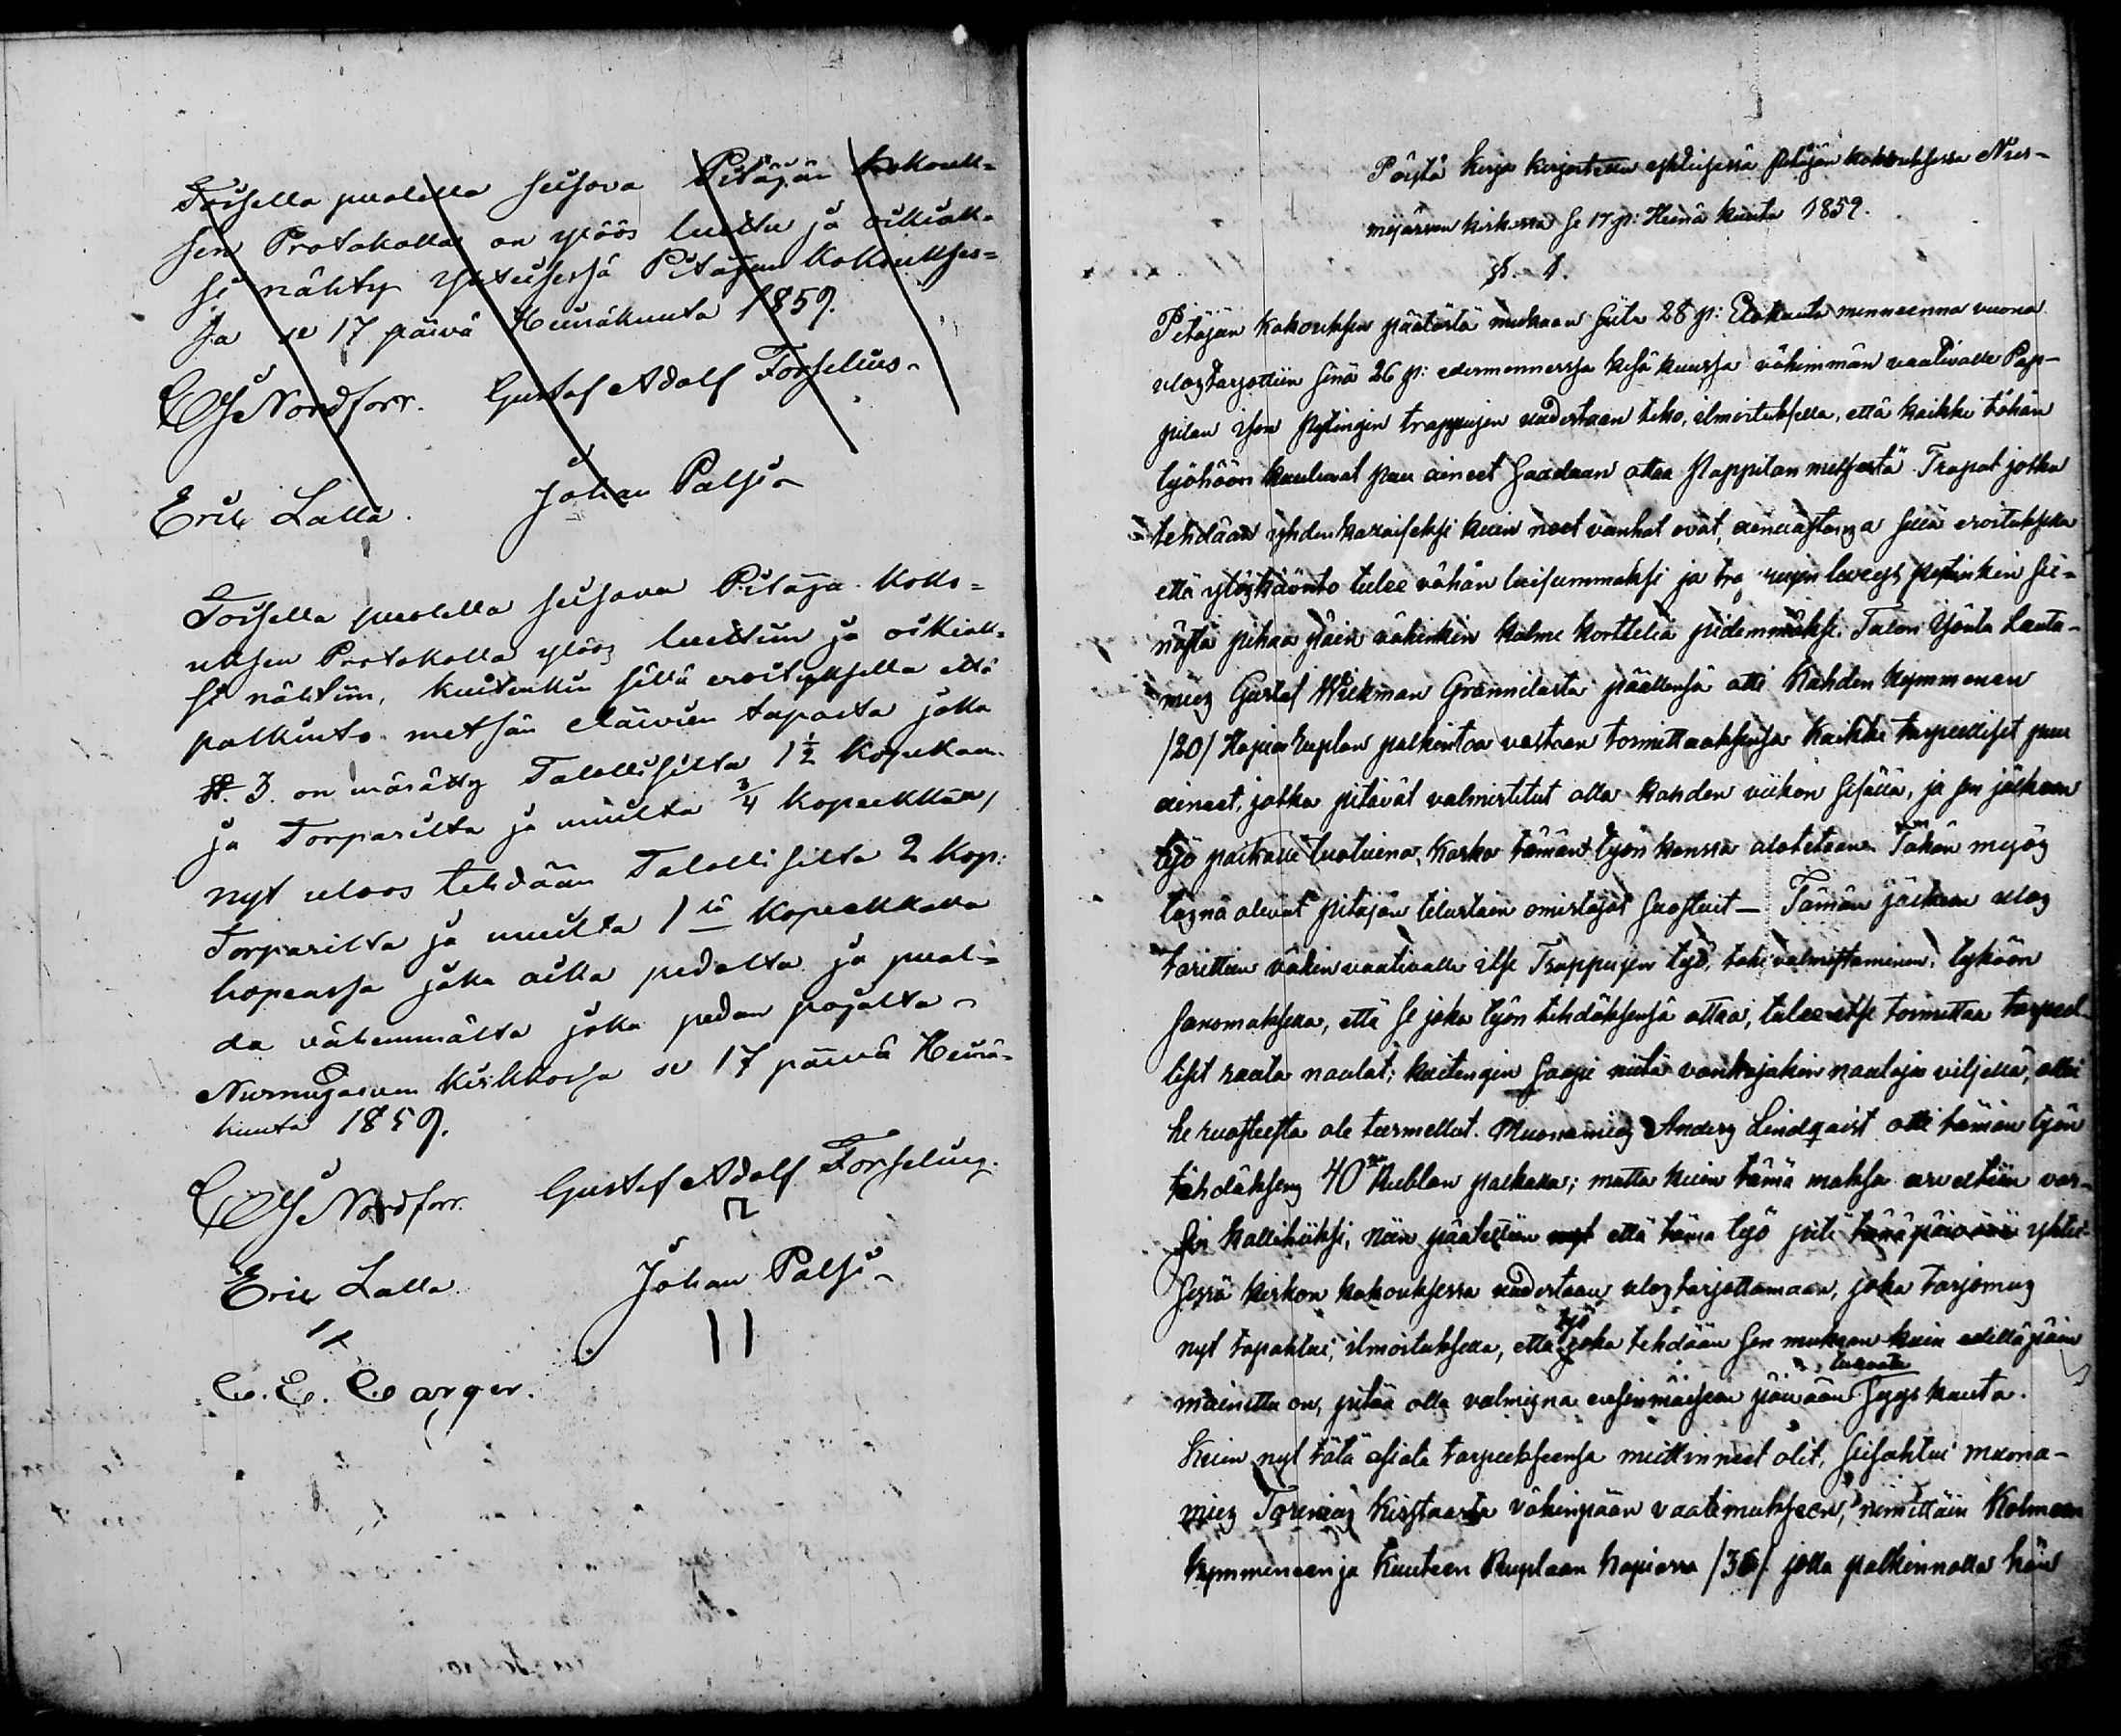 Toisella puolella seisova Pitäjän kokouk=
sen Protokolla on ylöös luettu ja oikiak=
si nähty Yhteisessä Pitäjän Kokoukses=
sa se 17 päivä Heinäkuuta 1859.
Nordforr. Gustaf Adolf Forselius.
Erik Lalla. Johan Palsi
Toisella puolella seisova Pitäjä Koko=
uksen Protokolla ylös luettiin ja oikiak=
si nähtiin, kuitenkin sillä eroituksella että
palkinto metsän eläivien taposta joka
§. 3. on märätty Talollisilta 1½ Kopekaan
ja Torparilta ja muilta ¾ kopeekkaa,
nyt uloos tehdään Talollisilta 2 Kop:
Torparilta ja muilta 1 Kopeekkaa
hopeassa joka aika pedolta ja puol=
da vähemmältä joka pedan pojalta
Nurmijärven Kirkkossa se 17 päivä Heinä=
kuuta 1859.
Nordforr. Gustaf Adolf Forselius.
Eric Lalla. Johan Palsi
C. E.
Pöytä kirja kirjoitettu yhteisessä pitäjän kokouksessa Nur-
mijärven kirkossa se 17 p: Heinä kuuta 1859.
§. 1.
Pitäjän kokouksen päätöstä mukaan siitä 28 p: Elokuuta mennenna vuona
ulostarjottiin sinä 26 p: edesmennessä kesä kuussa vähimmän vaativalle Pap-
pilan ison pytingin trappujen uudestaan teko, ilmoituksella, että kaikki tähän
työhöön kuuluvat puu aineet saadaan ottaa Pappilan metsästä. Trapat jotka
tehdään yhdenkaraiseksi kuin neet vanhat ovat, ainoastansa sillä eroituksella
että ylöskäänto tulee vähän luisummaksi ja leveys pytinkin sei=
nästä pihaa päin vähinkin kolme korttelia pidemmäksi. Talon Isäntä Lauta-
mies Gustaf Wiekman Grannilasta päällensä otti Kahden kymmenen
/20/ Hopia Ruplan palkintoa vastaan toimittaaksensa kaikki tarpeelliset puu
aineet, jotka pitävät valmistetut olla kahden viikon sisällä, ja sen jälkeen
työ paikalle tuotuina, koska tämän työn kanssa alotetaan. Tähän myös
läsnä olevat pitäjän tilustain omistajat suostuit — Tämän jälkeen ulos
tarittiin vähin vaativalle itse Trappujen työ, tahi valmistaminen, lyköön
sanomaksella, että se joka työn tehdäksensä ottaa, tulee itse toimittaa tarpeel-
liset rauta naulat; kuitengin saapi niitä vanhojakin nauloja viljellä, ellei
he ruosteesta ole turmellut. Muonamies Anders Lindqvist otti tämän työn
tehdäksens 40 Rublan palkalla; mutta kuin tämä maksa arveltiin var-
sin kalliiksi, niin päätettiin nyt että tämä työ piti tänäpäivänä yhtei-
sessä kirkon kokouksessa uudestaan ulostarjottamaan, joka tarjomus
nyt tapahtui, ilmoituksella, että työ joka tehdään sen mukaan kuin edelläpäin
mainittu on, pitää olla valmisna ensimmäiseen päivään tulevata Syys kuuta.
Kuin nyt tätä asiata tarpeeksensa miettinneet olit, seisahtui muona-
mies vähinpään vaatimukseen, nimittäin Kolmeen
kymmeneen ja Kuuteen Ruplaan hopiassa /36/ jolla palkinnolla hän